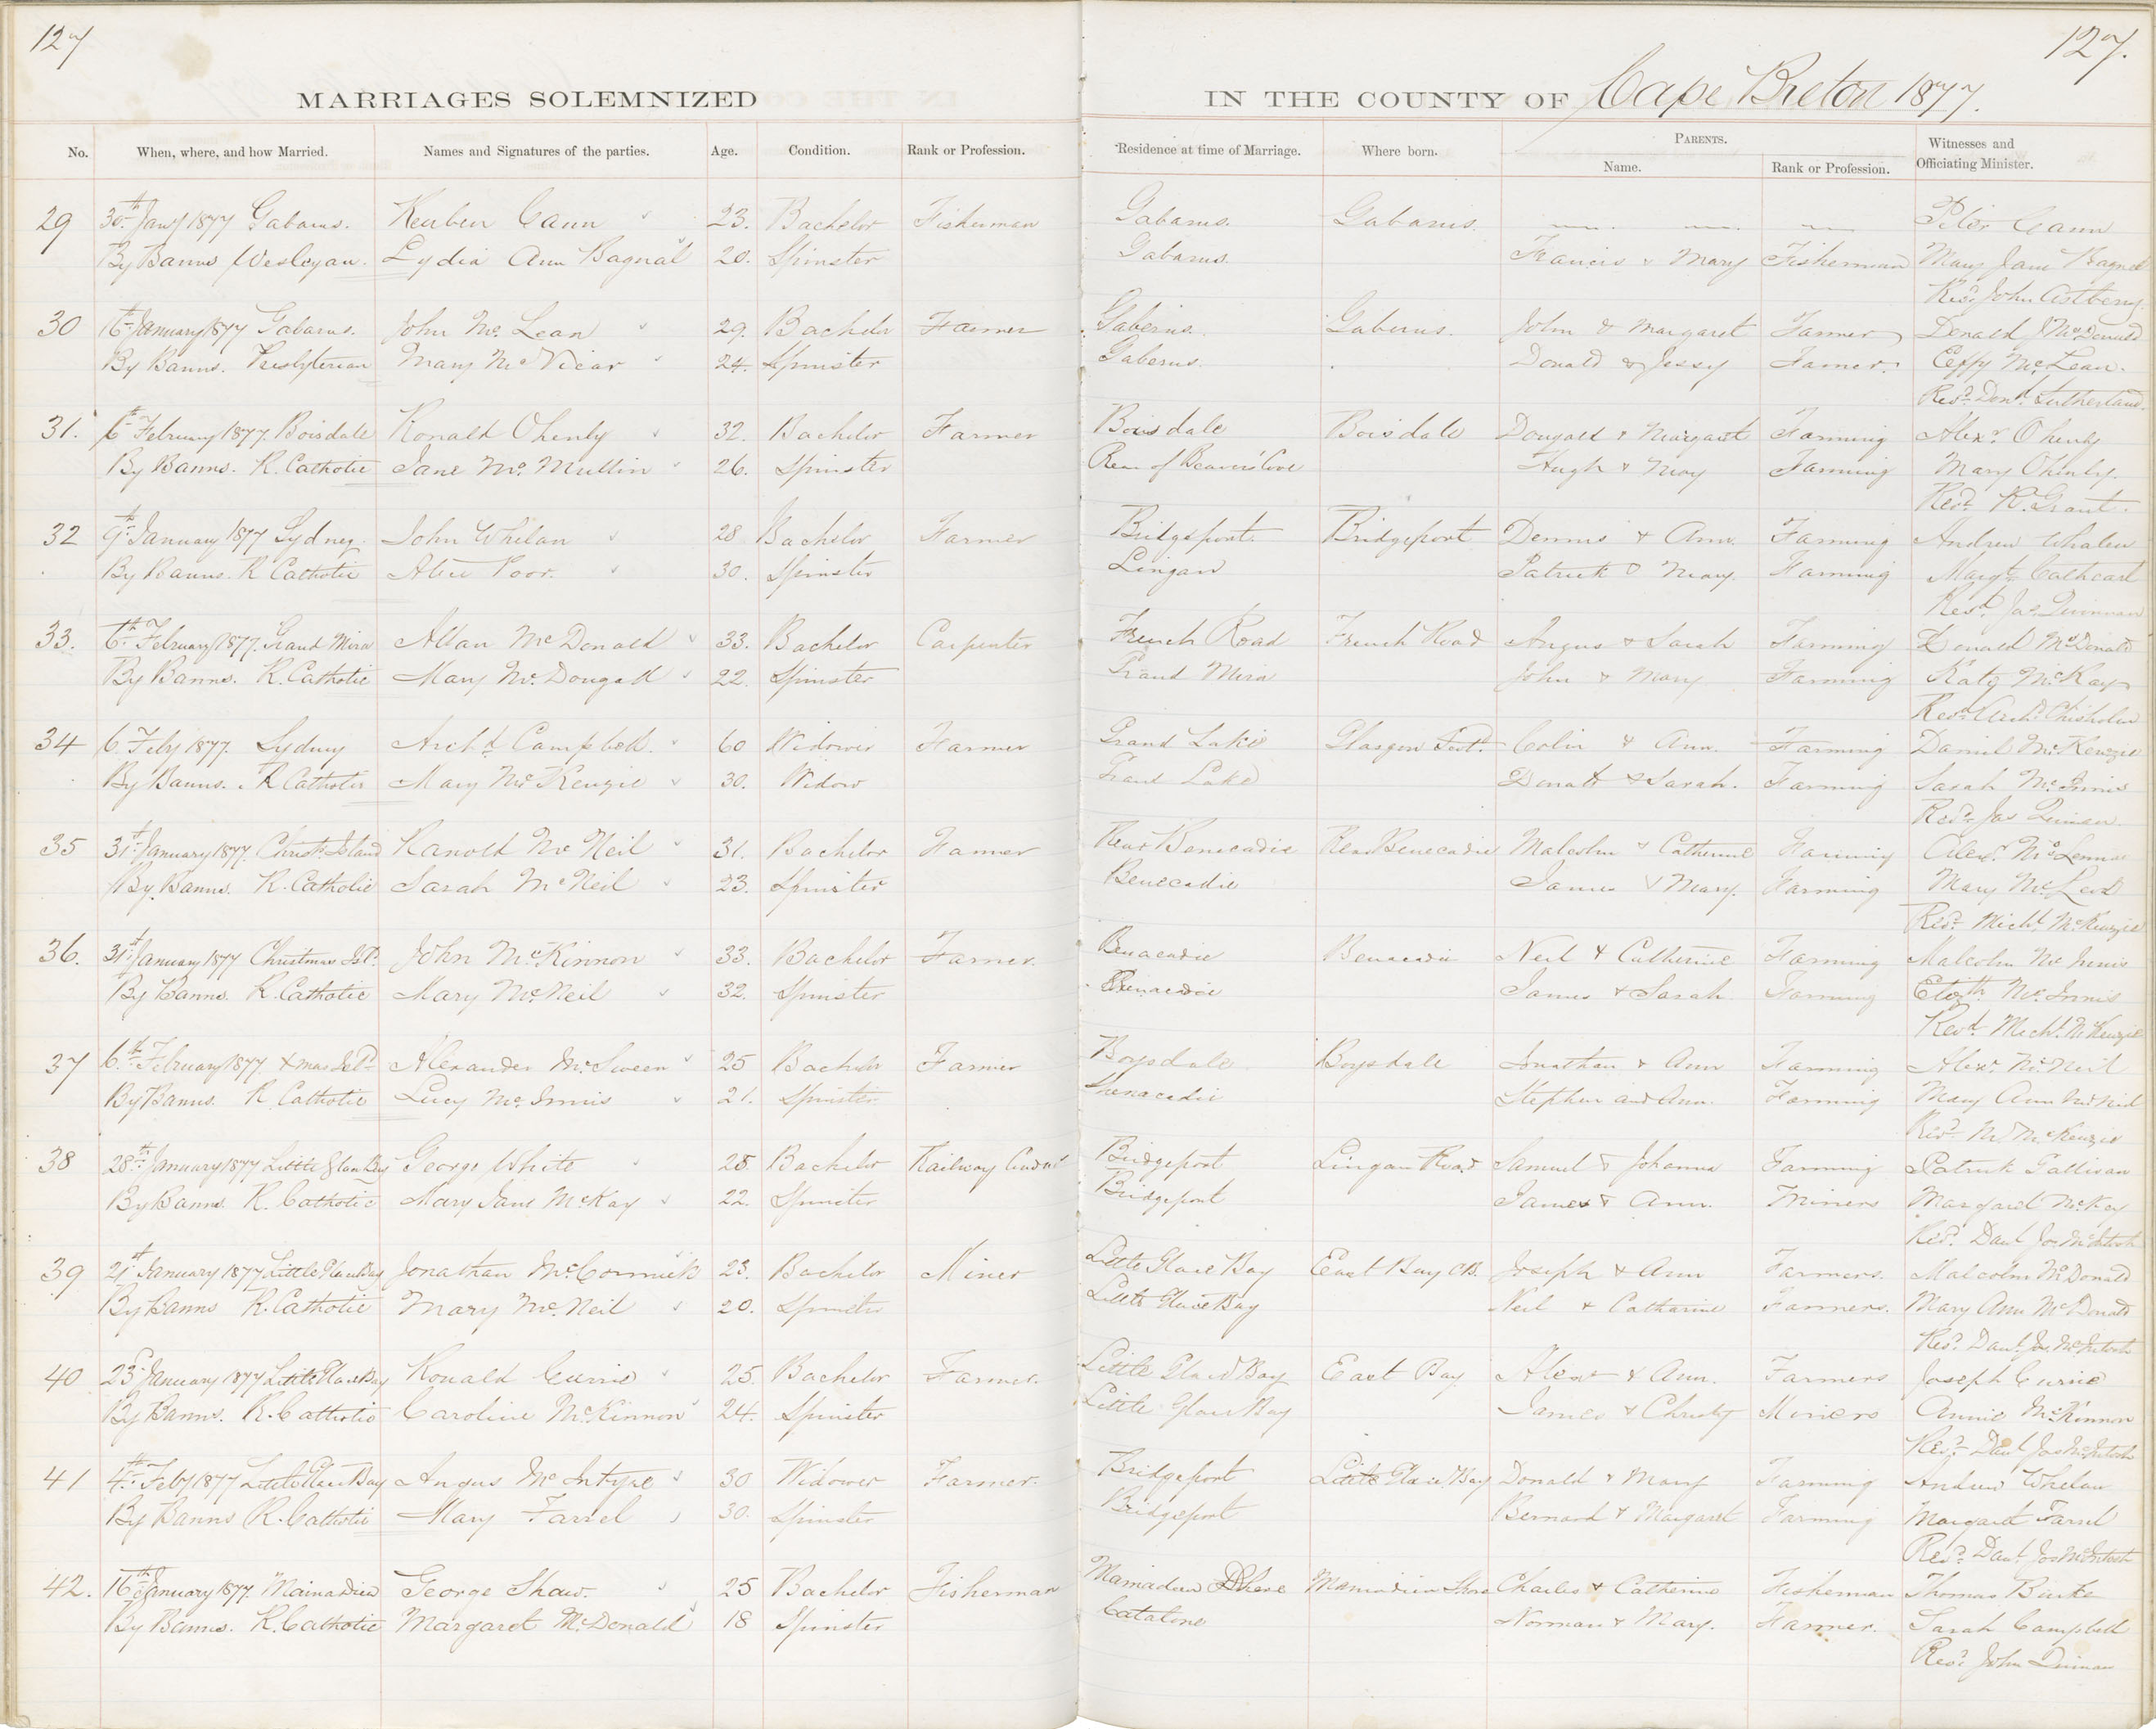 127
127.
MARRIAGES SOLEMNIZED IN THE COUNTY OF Cape Breton 1877.
No. When, where, and how Married. Names and Signatures of the parties. Age. Condition. Rank or Profession. Residence at time of Marriage. Where born. PARENTS. Name. Rank or Profession. Witnesses and Officiating Minister.
29 30th Jany 1877 Gabarus. Reuben Cann 23. Bachelor Fisherman Gabarus. Gabarus. Peter Cann
By Banns Wesleyan. Lydia Ann Bagnal 20. Spinster Gabarus. Francis & Mary Fisherman Mary Jane Bagnal
Revd. John Astbery
30 16th January 1877 Gabarus. John Mc Lean 29. Bachelor Farmer Gaberus. Gaberus. John & Margaret Farmer Donald J McDonald
By Banns. Presbyterian Mary McVicar 24. Spinster Gaberus. Donald & Jessy Farmer. Effy McLean.
Revd. Dond. Sutherland.
31. 6th February 1877. Boisdale Ronald Ohenly 32. Bachelor Farmer Boisdale Boisdale Dougald & Margaret Farming Alexr. Ohenly
By Banns. R. Catholic Jane Mc Mullin 26. Spinster Rear of Beaver Cove Hugh & Mary Farming Mary Ohenly.
Revd. R. Grant.
32 9th January 1877 Sydney. John Whelan 28 Bachelor Farmer Bridgeport. Bridgeport Dennis & Ann. Farming Andrew Whalen
By Banns. R Catholic Alice Poor. 30. Spinster Lingan Patrick & Mary. Farming Margt. Cathcart
Revd. Jas. Quinnan
33. 6th February 1877. Grand Mira Allan McDonald 33. Bachelor Carpenter French Road French Road Angus & Sarah Farming Donald McDonald
By Banns. R. Catholic Mary McDougall 22. Spinster Grand Mira John & Mary Farming Katy McKay
Revd. Archd. Chisholm
34 6. Feby 1877. Sydney Archd. Campbell. 60 Widower Farmer Grand Lake Glasgow Scotd. Colin & Ann. Farming Daniel McKenzie
By Banns. R Catholic Mary McKenzie 30. Widow Grand Lake Donald & Sarah. Farming Sarah McInnis
Revd. Jas Quinan
35 31st January 1877. Christs. Island Ranold Mc Neil 31. Bachelor Farmer Rear Benecadie Rear Benecadie Malcolm & Catherine Farming Alexr.
By Banns. R. Catholic Sarah McNeil 23. Spinster Benecadie James & Mary. Farming Mary McLeod
Revd. Michl. McKenzie
36. 31st January 1877 Christmas Isld. John McKinnon 33. Bachelor Farmer. Benacadie Benacadie Neil & Catherine Farming Malcolm Mc Innis
By Banns. R. Catholic Mary McNeil 32. Spinster Benacadie James & Sarah. Farming Elizth. McInnis
Revd. Michl. McKenzie
37 6th February 1877. Xmas Isld. Alexander McSween 25 Bachelor Farmer Boysdale Boysdale Jonathan & Ann Farming Alexr. McNeil
By Banns. R Catholic Lucy McInnis 21. Spinster Shenacadie Stephen and Ann. Farming Mary Ann McNeil
Revd. M. McKenzie
38 28th January 1877 Little Glace Bay George White 25. Bachelor Railway Bridgeport Lingan Road Samuel & Johanna Farming Patrick Gallivan
By Banns. R. Catholic Mary Jane McKay 22. Spinster Bridgeport James & Ann. Miners Margaret McKay
Revd. Danl. Jos. McIntosh
39 21st January 1877 Little Glace Bay Jonathan McCormick 23. Bachelor Miner Little Glace Bay East Bay CB. Joseph & Ann Farmers. Malcolm McDonald
By Banns R. Catholic Mary McNeil 20. Spinster Little Glace Bay Neil & Catharine Farmers. Mary Ann McDonald
Revd. Danl. Jos. McIntosh
40 23d January 1877 Little Glace Bay Ronald Currie 25. Bachelor Farmer. Little Glace Bay East Bay Alexr & Ann. Farmers Joseph Currie
By Banns. R. Catholic Caroline McKinnon 24. Spinster Little Glace Bay James & Christy Miners Annie McKinnon
Revd. Danl Jos McIntosh
41 4th Feby 1877 Little Glace Bay Angus McIntyre 30 Widower Farmer. Bridgeport Little Glace Bay Donald & Mary Farming Andrew Whelan
By Banns R. Catholic Mary Farrel 30. Spinster Bridgeport Bernard & Margaret Farming Margaret Farrel
Revd. Danl. Jos McIntosh
42. 16th January 1877. Mainadieu George Shaw. 25 Bachelor Fisherman Mainadieu Shore Mainadieu Shore Charles & Catherine Fisherman Thomas Burke
By Banns. R. Catholic Margaret McDonald 18 Spinster Catalone Norman & Mary. Farmer. Sarah Campbell
Revd. John Quinan